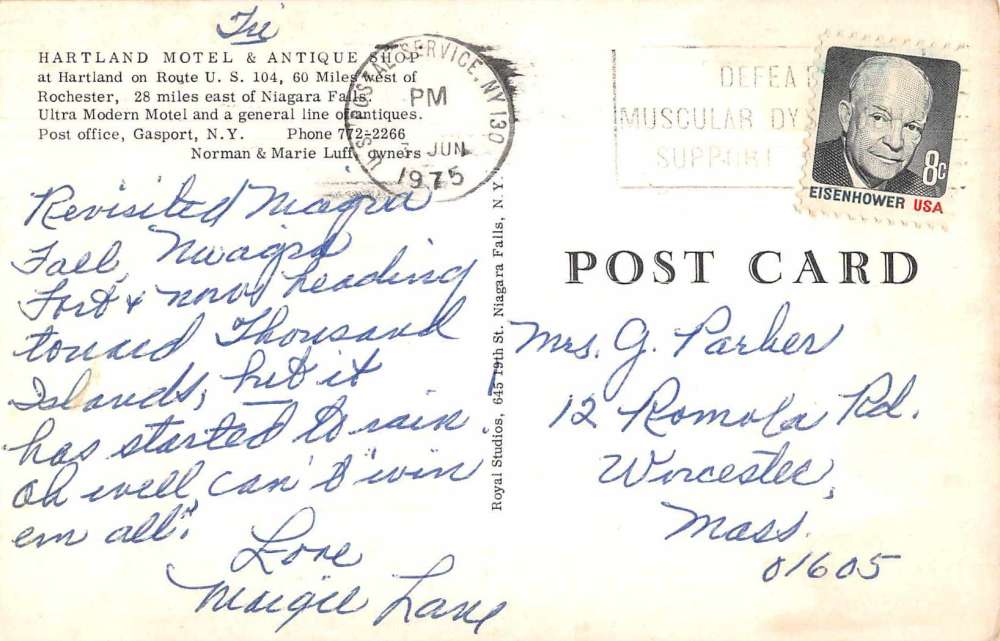 Fri
HARTLAND MOTEL & ANTIQUE SHOP
at Hartland on Route U. S. 104, 60 Miles west of
Rochester, 28 miles east of Niagara Falls.
Ultra Modern Motel and a general line of antiques.
Post office, Gasport, N.Y. Phone 772-2266
Norman & Marie Luff, owners
U.S. POSTAL SERVICE, NY 130
PM
3 JUN
1975
DEFEA
MUSCULAR DY
SUPPORT
8c
EISENHOWER USA
Revisited Niagra
Fall, Niagra
Fort & now heading
toward Thousand
Islands, but it
has started to rain.
Oh well, can't "win
em all."
Love
Lane
Royal Studios, 645 19th St. Niagara Falls, N. Y.
POST CARD
Mrs. G. Parker
12 Romola Rd.
Worcester,
Mass.
01605